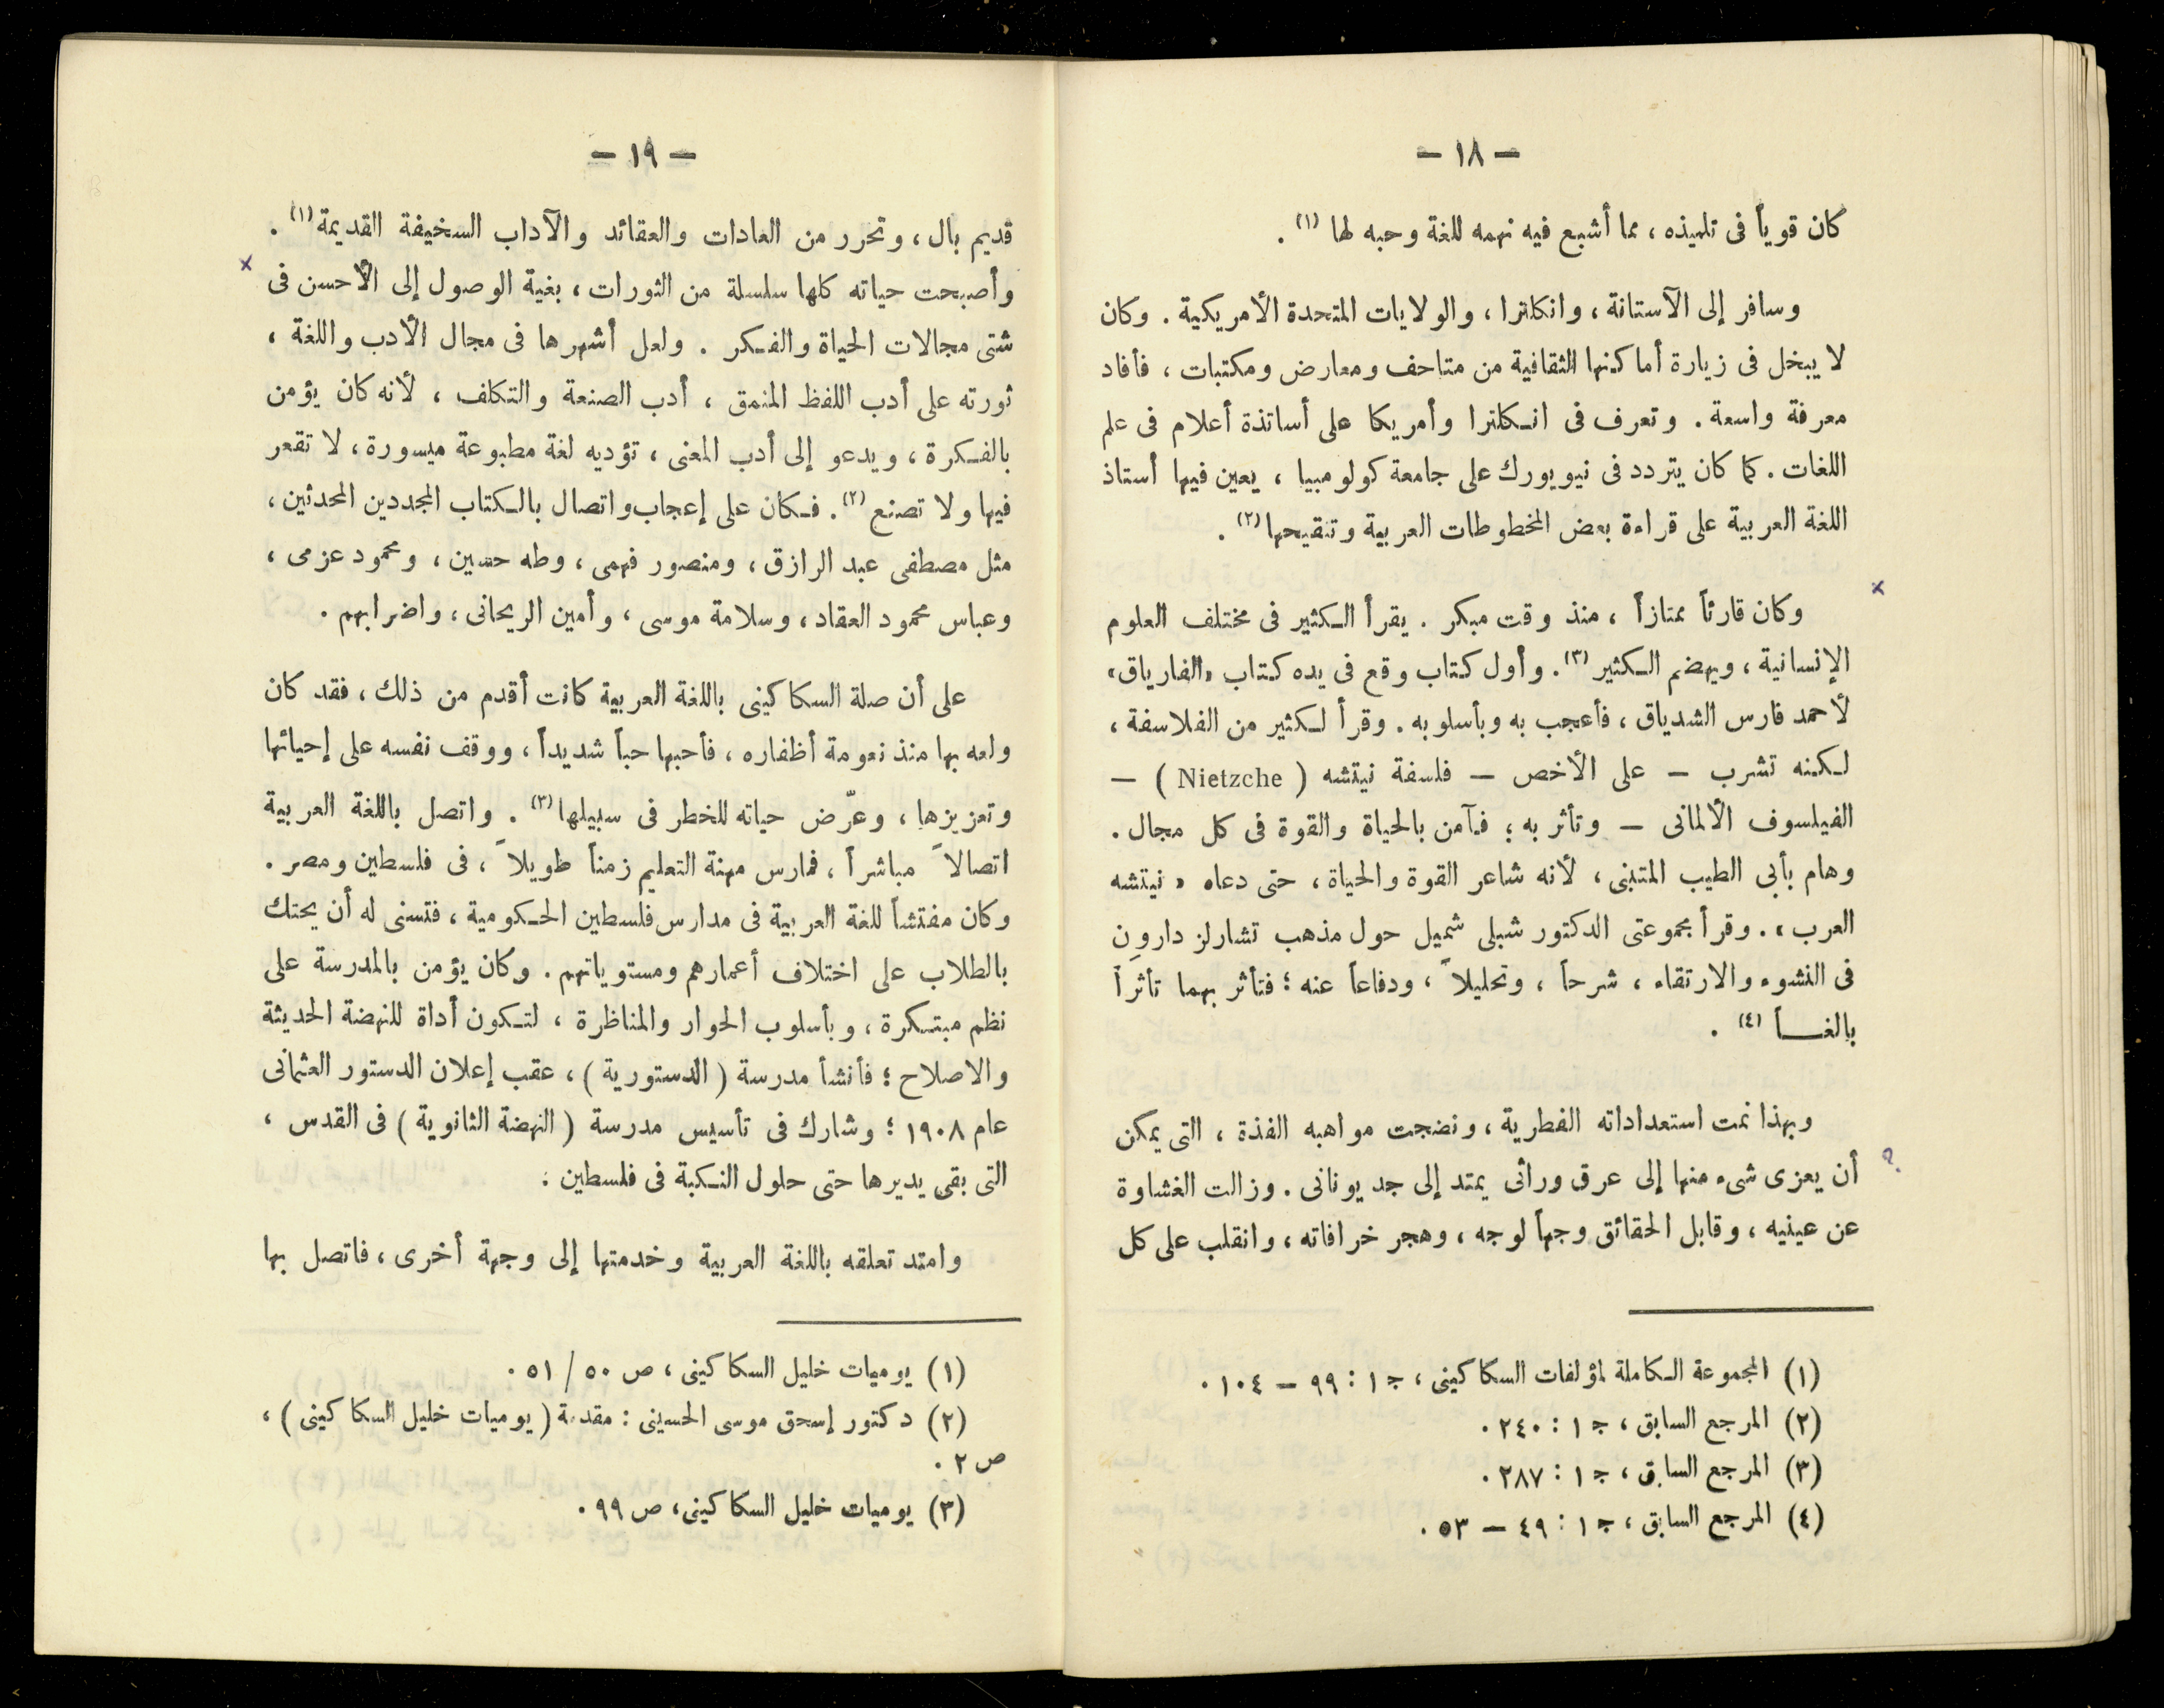 — ١٨ —
كان قوياً فى تلميذه ، مما أشبع فيه نهمه للغة وحبه لها (١) .
وسافر إلى الآستانة ، وانكلترا ، والولايات المتحدة الأمريكية . وكان
لا يبخل فى زيارة أماكنها الثقافية من متاحف ومعارض ومكتبات ، فأفاد
معرفة واسعة . وتعرف فى انكلترا وأمريكا على أساتذة أعلام فى علم
اللغات . كما كان يتردد فى نيويورك على جامعة كولومبيا ، يعين فيها أستاذ
اللغة العربية على قراءة بعض المخطوطات العربية وتنقيحها (٢) .
x
وكان قارئاً ممتازاً ، منذ وقت مبكر . يقرأ الكثير فى مختلف العلوم
الإنسانية ، ويهضم الكثير (٣) . وأول كتاب وقع فى يده كتاب «الفارياق»
لأحمد فارس الشدياق ، فأعجب به وبأسلوبه . وقرأ لكثير من الفلاسفة ،
لكنه تشرب — على الأخص — فلسفة نيتشه ( Nietzche ) —
الفيلسوف الألمانى — وتأثر به ؛ فآمن بالحياة والقوة فى كل مجال .
وهام بأبى الطيب المتنبى ، لأنه شاعر القوة والحياة ، حتى دعاه « نيتشه
العرب » . وقرأ مجموعتى الدكتور شبلى شميل حول مذهب تشارلز داروين
فى النشوء والارتقاء ، شرحاً ، وتحليلاً ، ودفاعاً عنه ؛ فتأثر بهما تأثراً
بالغــاً (٤) .
وبهذا نمت استعداداته الفطرية ، ونضجت مواهبه الفذة ، التى يمكن
?
أن يعزى شىء منها إلى عرق وراثى يمتد إلى جد يونانى . وزالت الغشاوة
عن عينيه ، وقابل الحقائق وجهاً لوجه ، وهجر خرافاته ، وانقلب على كل
(١) المجموعة الكاملة لمؤلفات السكاكينى ، ج ١ : ٩٩ — ١٠٤ .
(٢) المرجع السابق ، ج ١ : ٢٤٠ .
(٣) المرجع السابق ، ج ١ : ٢٨٧ .
(٤) المرجع السابق ، ج ١ : ٤٩ — ٥٣ .
— ١٩ —
قديم بال ، وتحرر من العادات والعقائد والآداب السخيفة القديمة (١) .
x
وأصبحت حياته كلها سلسلة من الثورات ، بغية الوصول إلى الأحسن فى
شتى مجالات الحياة والفكر . ولعل أشهرها فى مجال الأدب واللغة ،
ثورته على أدب اللفظ المنمق ، أدب الصنعة والتكلف ، لأنه كان يؤمن
بالفكرة ، ويدعو إلى أدب المعنى ، تؤديه لغة مطبوعة ميسورة ، لا تقعر
فيها ولا تصنع (٢) . فكان على إعجاب واتصال بالكتاب المجددين المحدثين ،
مثل مصطفى عبد الرازق ، ومنصور فهمى ، وطه حسين ، ومحمود عزمى ،
وعباس محمود العقاد ، وسلامة موسى ، وأمين الريحانى ، واضرابهم .
على أن صلة السكاكينى باللغة العربية كانت أقدم من ذلك ، فقد كان
ولعه بها منذ نعومة أظفاره ، فأحبها حباً شديداً ، ووقف نفسه على إحيائها
وتعزيزها ، وعرّض حياته للخطر فى سبيلها (٣) . واتصل باللغة العربية
اتصالاً مباشراً ، فمارس مهنة التعليم زمناً طويلاً ، فى فلسطين ومصر .
وكان مفتشاً للغة العربية فى مدارس فلسطين الحكومية ، فتسنى له أن يحتك
بالطلاب على اختلاف أعمارهم ومستوياتهم . وكان يؤمن بالمدرسة على
نظم مبتكرة ، وبأسلوب الحوار والمناظرة ، لتكون أداة للنهضة الحديثة
والاصلاح ؛ فأنشأ مدرسة ( الدستورية ) ، عقب إعلان الدستور العثمانى
عام ١٩٠٨ ؛ وشارك فى تأسيس مدرسة ( النهضة الثانوية ) فى القدس ،
التى بقى يديرها حتى حلول النكبة فى فلسطين :
وامتد تعلقه باللغة العربية وخدمتها إلى وجهة أخرى ، فاتصل بها
(١) يوميات خليل السكاكينى ، ص ٥٠ / ٥١ .
(٢) دكتور إسحق موسى الحسينى : مقدمة ( يوميات خليل السكاكينى ) ،
ص ٢ .
(٣) يوميات خليل السكاكينى ، ص ٩٩ .